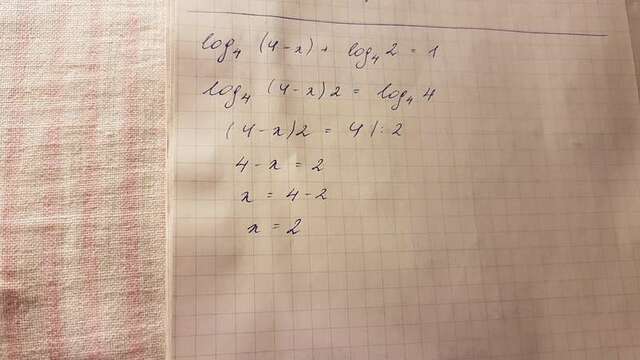 log₄ (4-x) + log₄ 2 = 1
log₄ (4-x)2 = log₄ 4
(4-x)2 = 4 |:2
4-x = 2
x = 4-2
x = 2